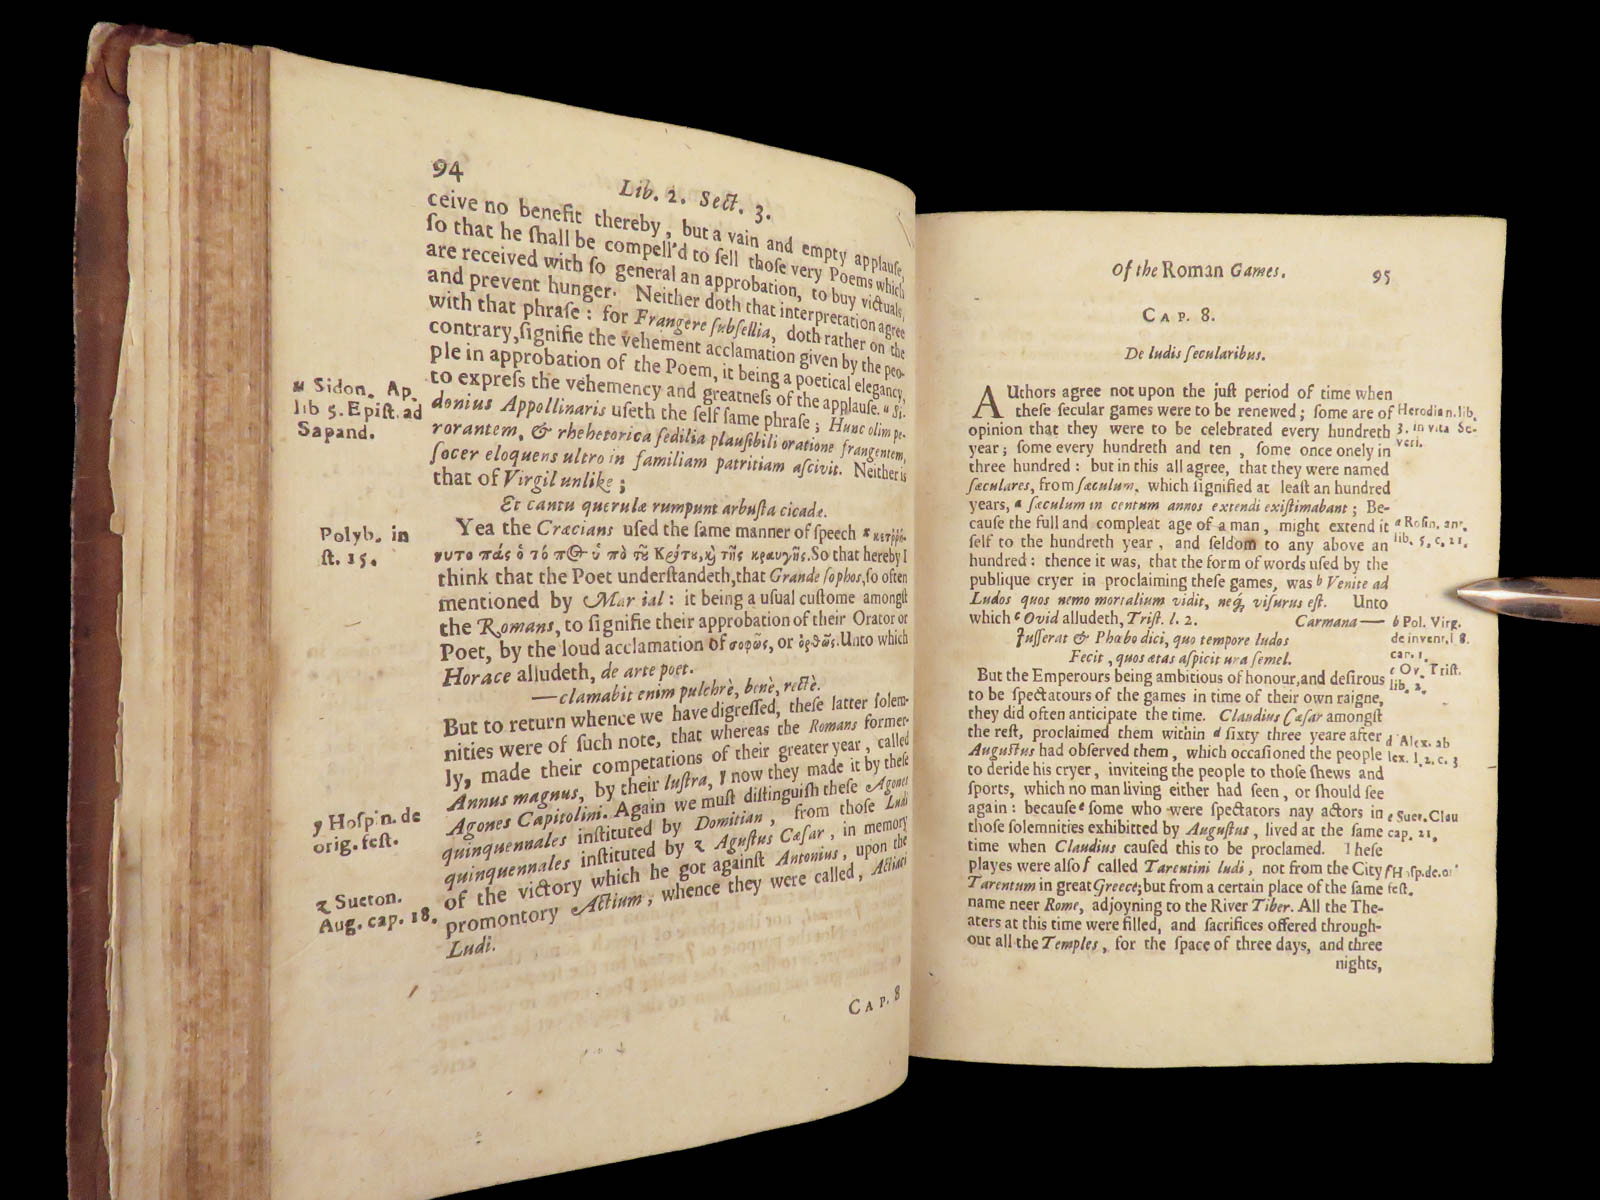 94
Lib. 2. Sect. 3.
ceive no benefit thereby, but a vain and empty applauſe,
ſo that he ſhall be compell'd to ſell thoſe very Poems which
are received with ſo general an approbation, to buy victuals,
and prevent hunger. Neither doth that interpretation agree
with that phraſe : for Frangere ſubſellia, doth rather on the
contrary, ſignifie the vehement acclamation given by the peo-
ple in approbation of the Poem, it being a poetical elegancy,
to expreſs the vehemency and greatneſs of the applauſe. u Si-
donius Appollinaris uſeth the ſelf ſame phraſe ; Hunc olim pe-
rorantem, & rhehetorica ſedilia plauſibili oratione frangentem,
ſocer eloquens ultro in familiam patritiam aſcivit. Neither is
that of Virgil unlike ;
Et cantu querulæ rumpunt arbuſta cicade.
Yea the Cræcians uſed the ſame manner of ſpeech x
So that hereby I
think that the Poet underſtandeth, that Grande ſophos, ſo often
mentioned by Mar ial : it being a uſual cuſtome amongſt
the Romans, to ſignifie their approbation of their Orator or
Poet, by the loud acclamation of σοφῶς, or ὀρθῶς. Unto which
Horace alludeth, de arte poet.
—clamabit enim pulchrè, benè, rectè.
But to return whence we have digreſſed, theſe latter ſolem-
nities were of ſuch note, that whereas the Romans former-
ly, made their competations of their greater year, called
Annus magnus, by their luſtra, y now they made it by theſe
Agones Capitolini. Again we muſt diſtinguiſh theſe Agones
quinquennales inſtituted by Domitian, from thoſe Ludi
quinquennales inſtituted by z Aguſtus Cæſar, in memory
of the victory which he got againſt Antonius, upon the
promontory Actium, whence they were called, Actiaci
Ludi.
CAP. 8
u Sidon. Ap.
lib 5. Epiſt. ad
Sapand.
Polyb. in
ſt. 15.
y Hoſpin. de
orig. feſt.
z Sueton.
Aug. cap. 18.
Of the Roman Games.
95
CAP. 8.
De ludis ſecularibus.
AUthors agree not upon the juſt period of time when
theſe ſecular games were to be renewed ; ſome are of
opinion that they were to be celebrated every hundreth
year ; ſome every hundreth and ten , ſome once onely in
three hundred : but in this all agree, that they were named
ſæculares, from ſæculum, which ſignified at leaſt an hundred
years, a ſæculum in centum annos extendi exiſtimabant ; Be-
cauſe the full and compleat age of a man, might extend it
ſelf to the hundreth year , and ſeldom to any above an
hundred : thence it was, that the form of words uſed by the
publique cryer in proclaiming theſe games, was b Venite ad
Ludos quos nemo mortalium vidit, neq; viſurus eſt. Unto
which c Ovid alludeth, Triſt. l. 2. Carmana—
Juſſerat & Phœbo dici, quo tempore ludos
Fecit , quos ætas aſpicit una ſemel.
But the Emperours being ambitious of honour, and deſirous
to be ſpectatours of the games in time of their own raigne,
they did often anticipate the time. Claudius Cæſar amongſt
the reſt, proclaimed them within d ſixty three yeare after
Auguſtus had obſerved them , which occaſioned the people
to deride his cryer , inviteing the people to thoſe ſhews and
ſports, which no man living either had ſeen , or ſhould ſee
again : becauſe e ſome who were ſpectators nay actors in
thoſe ſolemnities exhibitted by Auguſtus , lived at the ſame
time when Claudius cauſed this to be proclamed. Theſe
playes were alſo f called Tarentini ludi , not from the City
Tarentum in great Greece; but from a certain place of the ſame
name neer Rome, adjoyning to the River Tiber. All the The-
aters at this time were filled, and sacrifices offered through-
out all the Temples , for the ſpace of three days, and three
nights,
Herodian. lib.
3. in vita Se-
veri.
a Roſin. ant.
lib. 5. c. 21.
b Pol. Virg.
de invent. l 8.
cap. 1.
c Ov. Triſt.
lib. 2.
d Alex. ab
lex. l. 2. c. 3
e Suet. Clau
cap. 21.
f Hoſp. de. or
feſt.